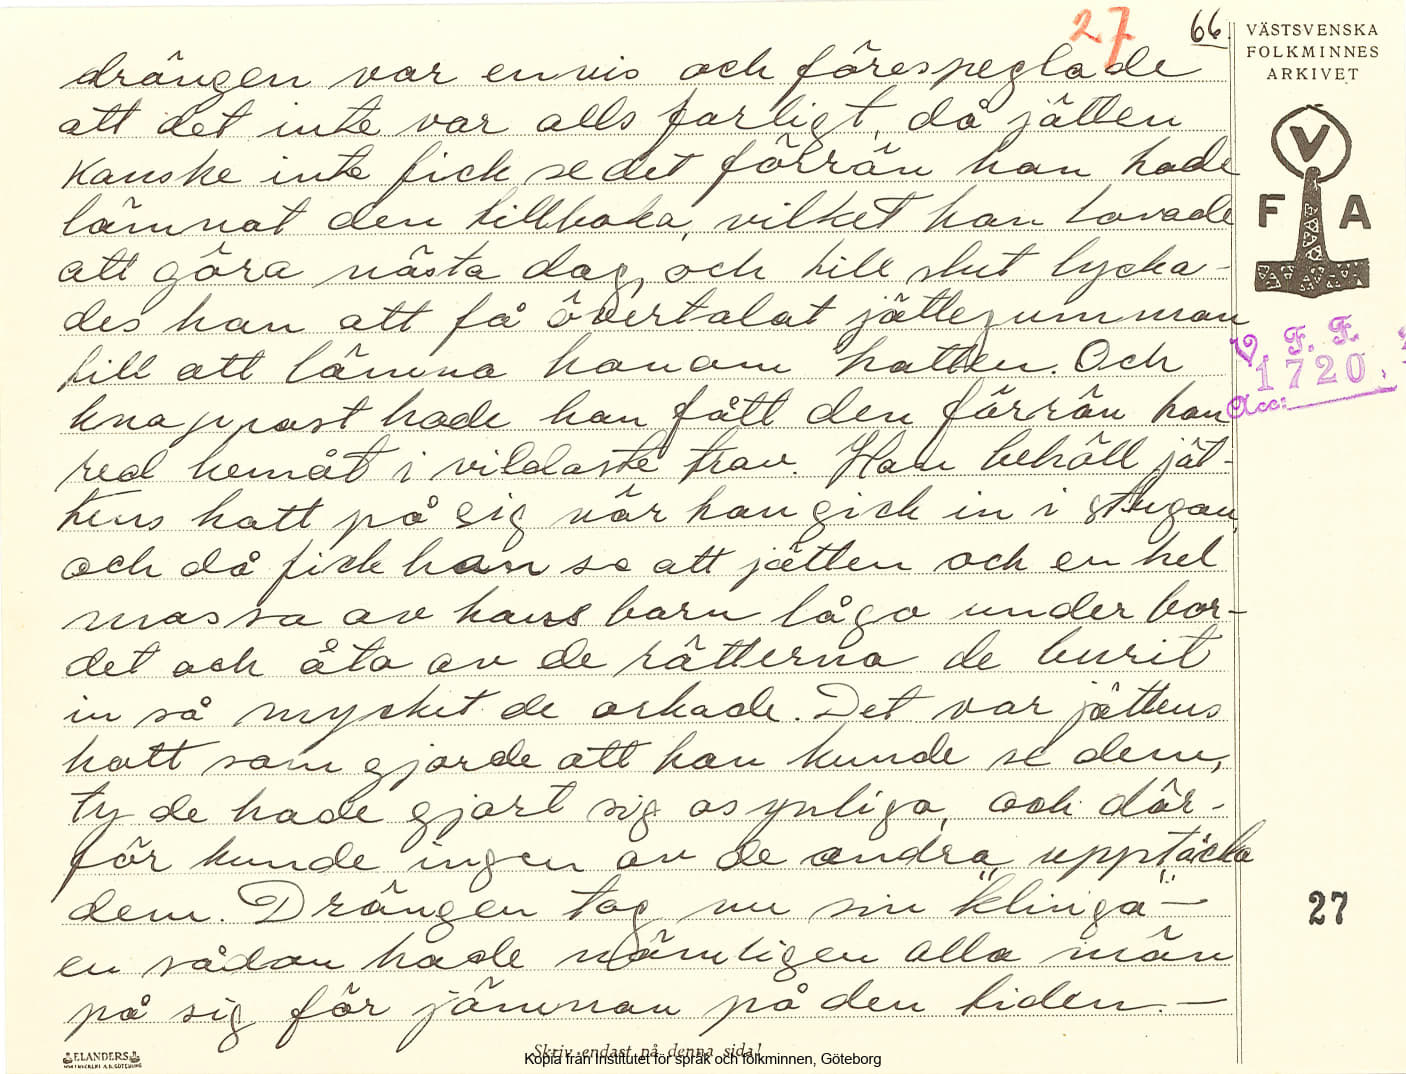 27 66.
VÄSTSVENSKA
FOLKMINNES
ARKIVET
V
F A
drängen var envis och förespeglade
att det inte var alls farligt, då jätten
kanske inte fick se det förrän han hade
lämnat den tillbaka, vilket han lovade
att göra nästa dag, och till slut lycka-
des han att få övertalat jättegumman
till att lämna honom hatten. Och
knappast hade han fått den förrän han
red hemåt i vildaste trav. Han behöll jät-
tens hatt på sig när han gick in i stugan,
och då fick han se att jätten och en hel
massa av hans barn lågo under bor-
det och åto av de rätterna de burit
in så mycket de orkade. Det var jättens
hatt som gjorde att han kunde se dem,
ty de hade gjort sig osynliga, och där-
för kunde ingen av de andra upptäcka
dem. Drängen tog nu sin "klinga" —
en sådan hade nämligen alla män
på sig för jämnan på den tiden. —
V. F. F.
1720
Acc:
27
Skriv endast på denna sida!
Kopia från Institutet för språk och folkminnen, Göteborg
ELANDERS